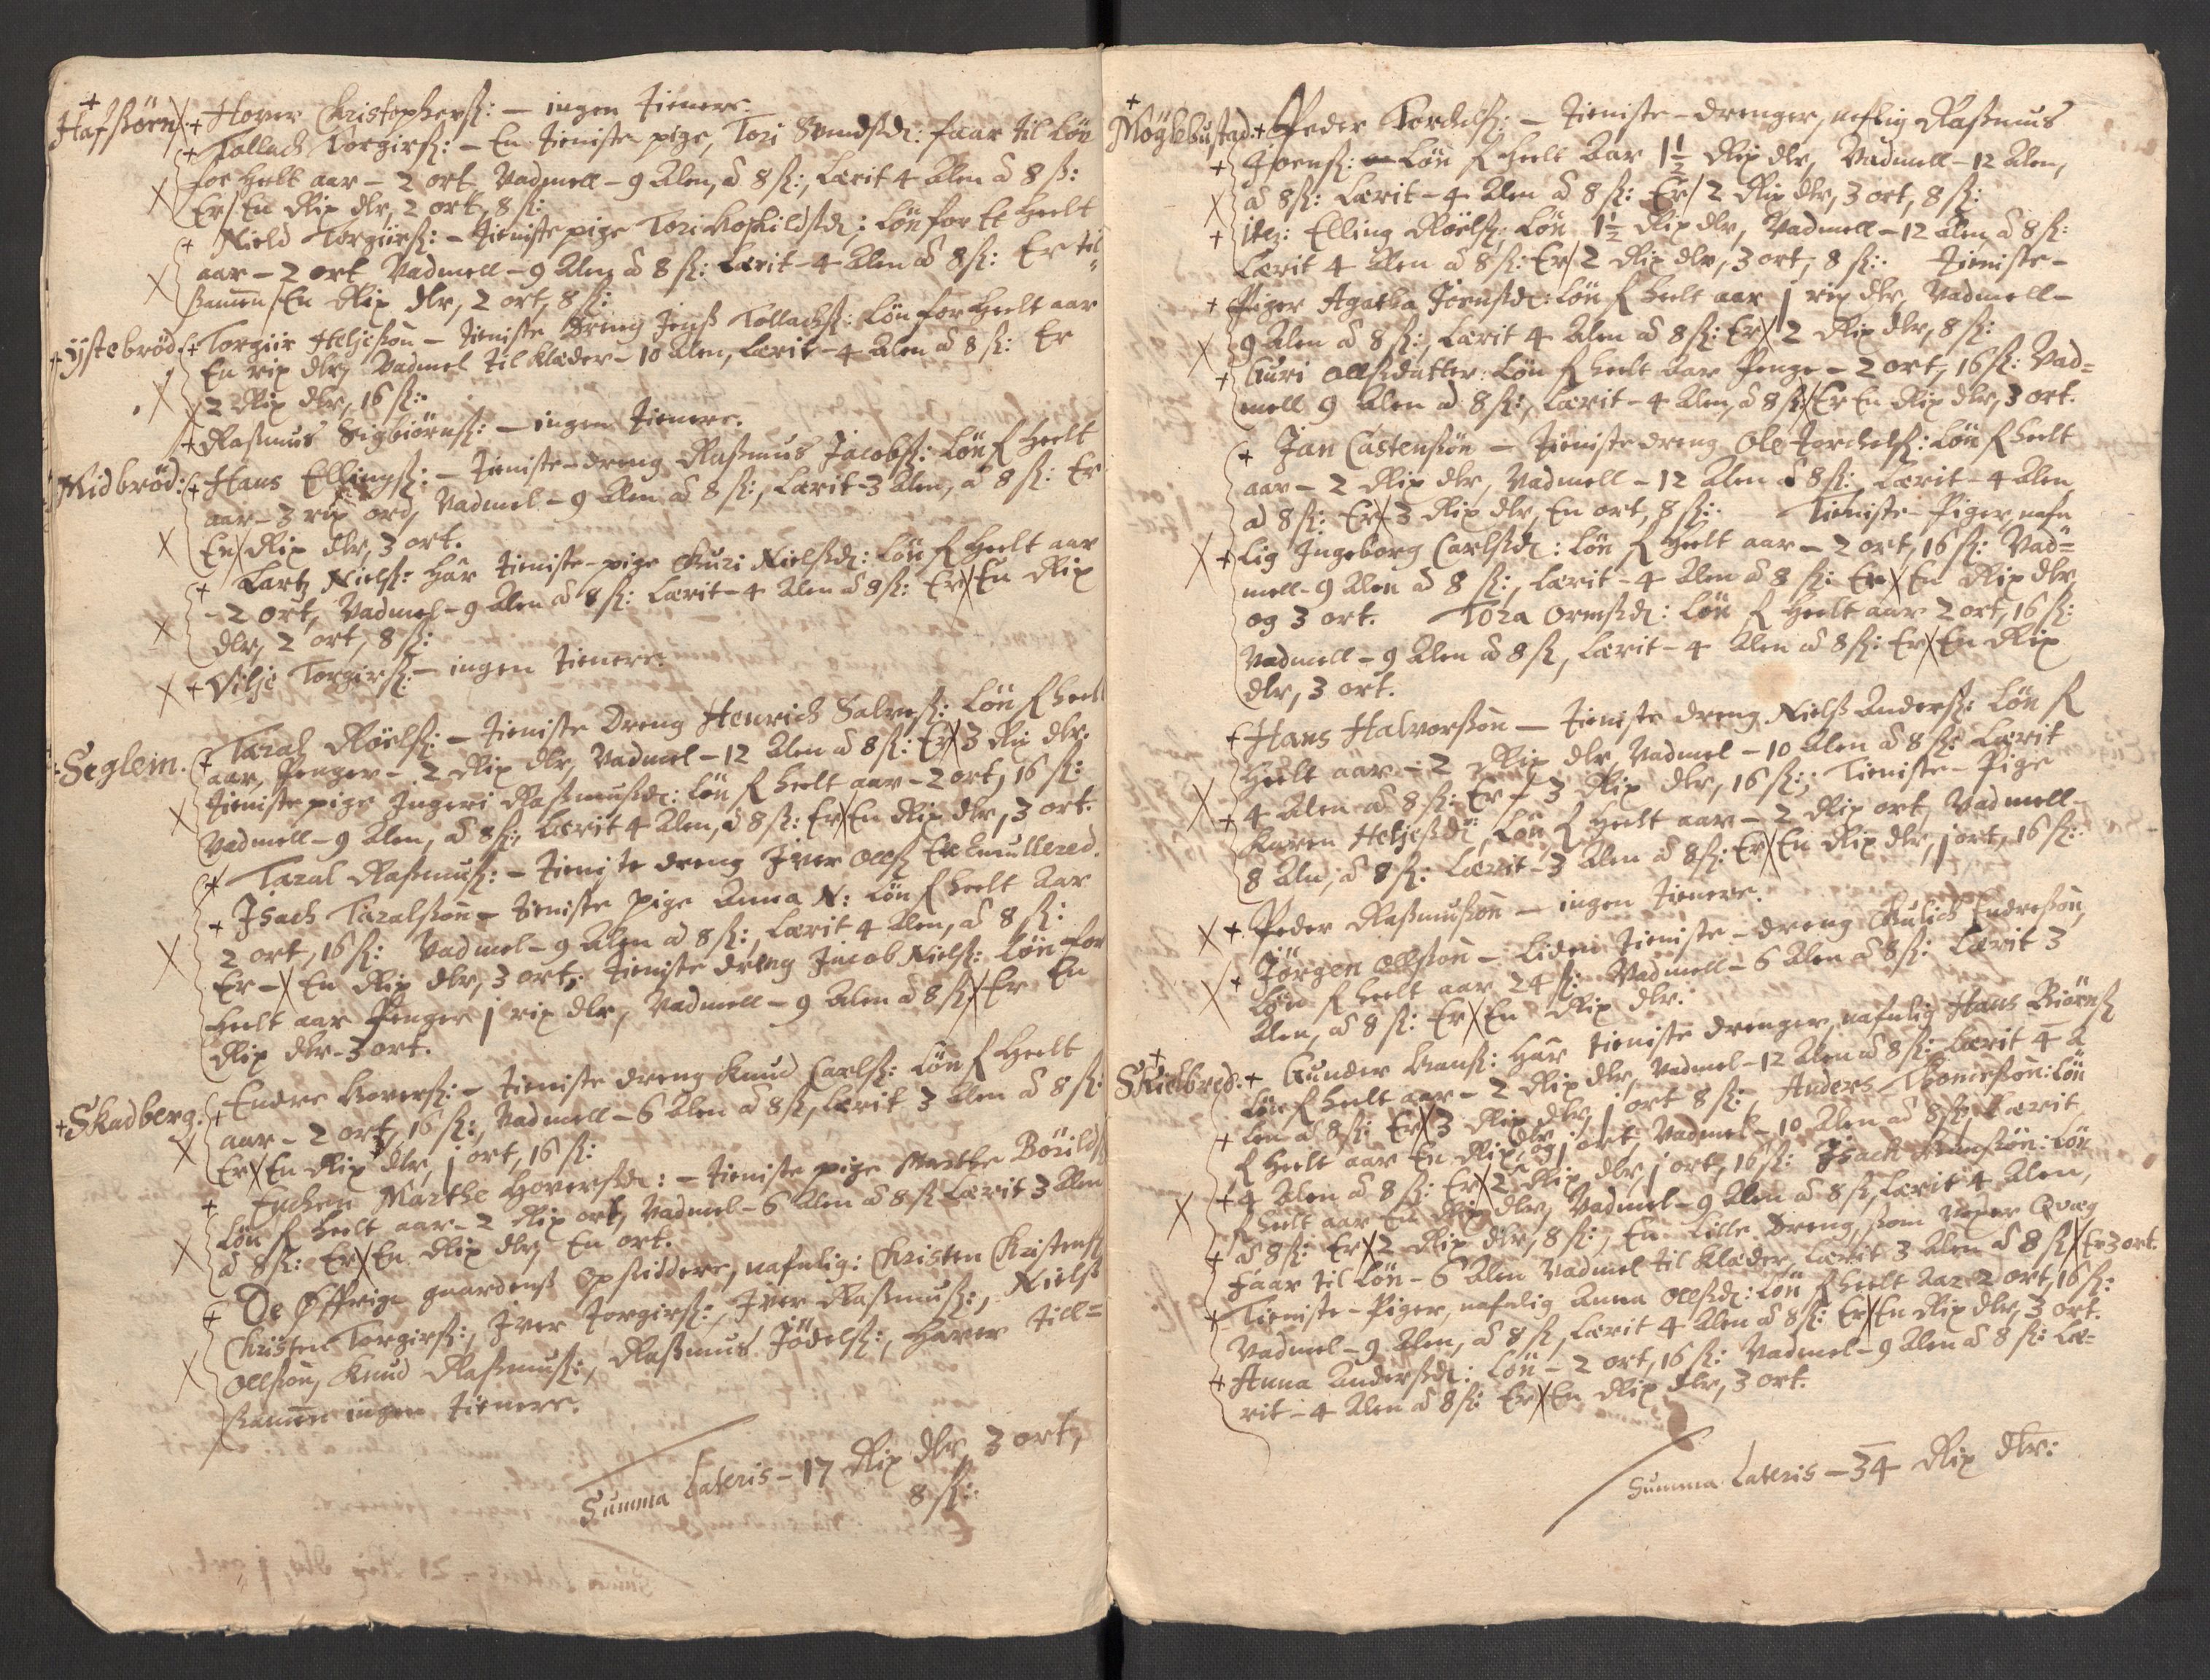 Hafsörn + Hover Christophersß: – ingen Tienere.
+ Tollach Torgirsß: – En Tieniste pige, Tori Svendsdr: faar til Løn
for heelt aar – 2 ort Vadmell – 9 Alen, a 8 ß:, Lærit 4 Alen a 8 ß:
Er/En Rix dlr, 2 ort, 8 ß:
+ Nield Torgiirsß: – Tieniste pige Tori Hoskildsdr: Løn for Et heelt
aar – 2 ort Vadmell – 9 Alen a 8 ß: Lærit – 4 Alen a 8 ß: Er til-
sammen/En Rix dlr, 2 ort, 8 ß:
+ ÿstebrød: + Torgiir Heljesøn – Tieniste Dreng Jenß Tollachsß: Løn for heelt aar
En rix dlr, Vadmel til Klæder – 10 Alen, Lærit – 4 Alen a 8 ß: Er
2 Rix dlr, 16 ß:
+ Rasmus Sigbiörnsß: – ingen Tienere.
Midbrød: + Hans Ellingsß: – Tieniste-dreng Rasmus Jacobsß: Løn f heelt
aar – 3 rix ord, Vadmel – 9 Alen a 8 ß:, Lærit 3 Alen, a 8 ß: Er
En Rix dlr, 3 ort.
+ Lartz Nielsß: har Tieniste-pige Guri Nielsdr: Løn f heelt aar
– 2 ort, Vadmel – 9 Alen a 8 ß: Lærit – 4 Alen a 8 ß: Er En Rix
dlr, 2 ort, 8 ß:
+ Silje Torgirsß: – ingen Tienere.
+ Seglem. + Taral Röelsß: – Tieniste Dreng Henrich Salvesß: Løn f heelt
aar, Penger – 2 Rix dlr, Vadmel – 12 Alen a 8 ß: Er 3 Rix dlr.
Tieniste pige Jngeri Rasmusdr: Løn f heelt aar – 2 ort, 16 ß:
Vadmell – 9 Alen, a 8 ß:, Lærit 4 Alen, a 8 ß: Er En Rix dlr, 3 ort.
+ Taral Rasmusß: – Tieniste dreng Jver Ollsß Er
+ Jsach Taralsøn – Tieniste pige Anna N: Løn f heelt Aar
2 ort, 16 ß: Vadmel – 9 Alen a 8 ß:, Lærit 4 Alen, a 8 ß:
Er – En Rix dlr, 3 ort; Tieniste dreng Jacob Nielsß: Løn for
heelt aar Penger j rix dlr, Vadmell – 9 Alen a 8 ß: Er En
Rix dlr 3 ort.
+ Skadberg. + Endre Hoversß: – Tieniste dreng Knud Carlsß: Løn f heelt
aar – 2 ort, 16 ß:, Vadmell – 6 Alen a 8 ß, Lærit 3 Alen a 8 ß:
Er En Rix dlr, j ort, 16 ß:
+ Enchen Marthe Hoversdr: – Tieniste pige Marthe Börilds
Løn f heelt aar – 2 Rix ort, Vadmel – 6 Alen a 8 ß Lærit 3 Alen
a 8 ß: Er En Rix dlr, En ort.
+ De Øffrige gaardens opsiddere, nafnlig: Christen Christensß
Christen Torgirsß:, Jver Torgirsß:, Jver Rasmusß:, Nielß
Ollsøn, Knud Rasmusß:, Rasmus Jödelsß:, Haver till=
sammen ingen Tienere.
Summa Lateris – 17 Rix dlr 3 ort,
8 ß:
Möglebustad: + Peder Torchelsß: – Tieniste-drenger, nflig Rasmus
+ Joensß: Løn f heelt Aar 1½ Rix dlr, Vadmell – 12 Alen,
a 8 ß: Lærit – 4 Alen a 8 ß: Er/2 Rix dlr, 3 ort, 8 ß:
+ Elling Röelsß: Løn 1½ Rix dlr, Vadmell – 12 Alen a 8 ß:
Lærit 4 Alen a 8 ß: Er/2 Rix dlr, 3 ort, 8 ß: Tieniste-
+ Piger Agatha Jörnsdr: Løn f heelt aar j rix dlr, Vadmell –
9 Alen a 8 ß:, Lærit 4 Alen a 8 ß: Er 2 Rix dlr, 8 ß:
+ Guri Ollsdatter: Løn f heelt aar Penge – 2 ort, 16 ß: Vad=
mell 9 Alen a 8 ß:, Lærit – 4 Alen, a 8 ß/Er En Rix dlr, 3 ort.
+ Jan Castensøn – Tieniste dreng Ole Torchelsß: Løn f heelt
aar – 2 Rix dlr, Vadmell – 12 Alen a 8 ß: Lærit – 4 Alen
a 8 ß: Er 3 Rix dlr, En ort, 8 ß: Tieniste-Piger, nafn
+ Lig Jngeborg Carlsdr: Løn f heelt aar – 2 ort, 16 ß: Vad=
mell – 9 Alen a 8 ß:, Lærit – 4 Alen a 8 ß: Er En Rix dlr
og 3 ort. Tora Ormsdr: Løn f heelt aar 2 ort, 16 ß:
Vadmell – 9 Alen a 8 ß, Lærit – 4 Alen a 8 ß: Er En Rix
dlr, 3 ort.
+ Hans Halvorsøn – Tieniste dreng Nielß Andersß: Løn f
heelt aar – 2 Rix dlr, Vadmel – 10 Alen a 8 ß: Lærit
+ 4 Alen a 8 ß: Er – 3 Rix dlr, 16 ß:; Tieniste-Pige
Karen Heljesdr: Løn f heelt aar – 2 Rix ort, Vadmell –
8 Aln, a 8 ß: Lærit – 3 Alen a 8 ß: Er En Rix dlr, j ort, 16 ß:
+ Peder Rasmusøn – ingen Tienere.
+ Jörgen Ollsøn – Liden Tieniste-dreng Gulich Endresøn,
Løn f heelt aar 24 ß: Vadmell – 6 Alen a 8 ß: Lærit 3
Alen, a 8 ß: Er En Rix dlr:
Skielbred: + Gunder Hansß: Har Tieniste drenger, nafnlig Hans Biörnsß
Løn f heelt aar – 2 Rix dlr, Vadmel – 12 Alen a 8 ß: Lærit 4 A
+ len a 8 ß: Er 3 Rix dlr, j ort 8 ß:, Anders Thomesøn: Løn
f heelt aar En Rix dlr og j ort, Vadmel – 10 Alen a 8 ß: Lærit
+ 4 Alen a 8 ß: Er 2 Rix dlr, j ort, 16 ß: Jsach Hansøn: Løn
f heelt aar En Rix dlr, Vadmel – 9 Alen a 8 ß, Lærit 4 Alen,
+ a 8 ß: Er 2 Rix dlr, 8 ß:, En Lille Dreng, som voger Qvæg
Faar til Løn – 6 Alen Vadmel til Klæder, Lærit 3 Alen a 8 ß Er 3 ort.
+ Tieniste-Piger, nafnlig Anna Ollsdr: Løn f heelt Aar 2 ort, 16 ß:
Vadmel – 9 Alen, a 8 ß, Lærit 4 Alen a 8 ß: Er En Rix dlr, 3 ort.
+ Anna Andersdr: Løn – 2 ort, 16 ß: Vadmel – 9 Alen a 8 ß: Læ=
rit – 4 Alen a 8 ß: Er En Rix dlr, 3 ort.
Summa Lateris – 34 Rix dlr: